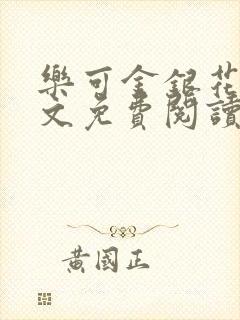 樂可金銀花
文免費閱讀
黃國正